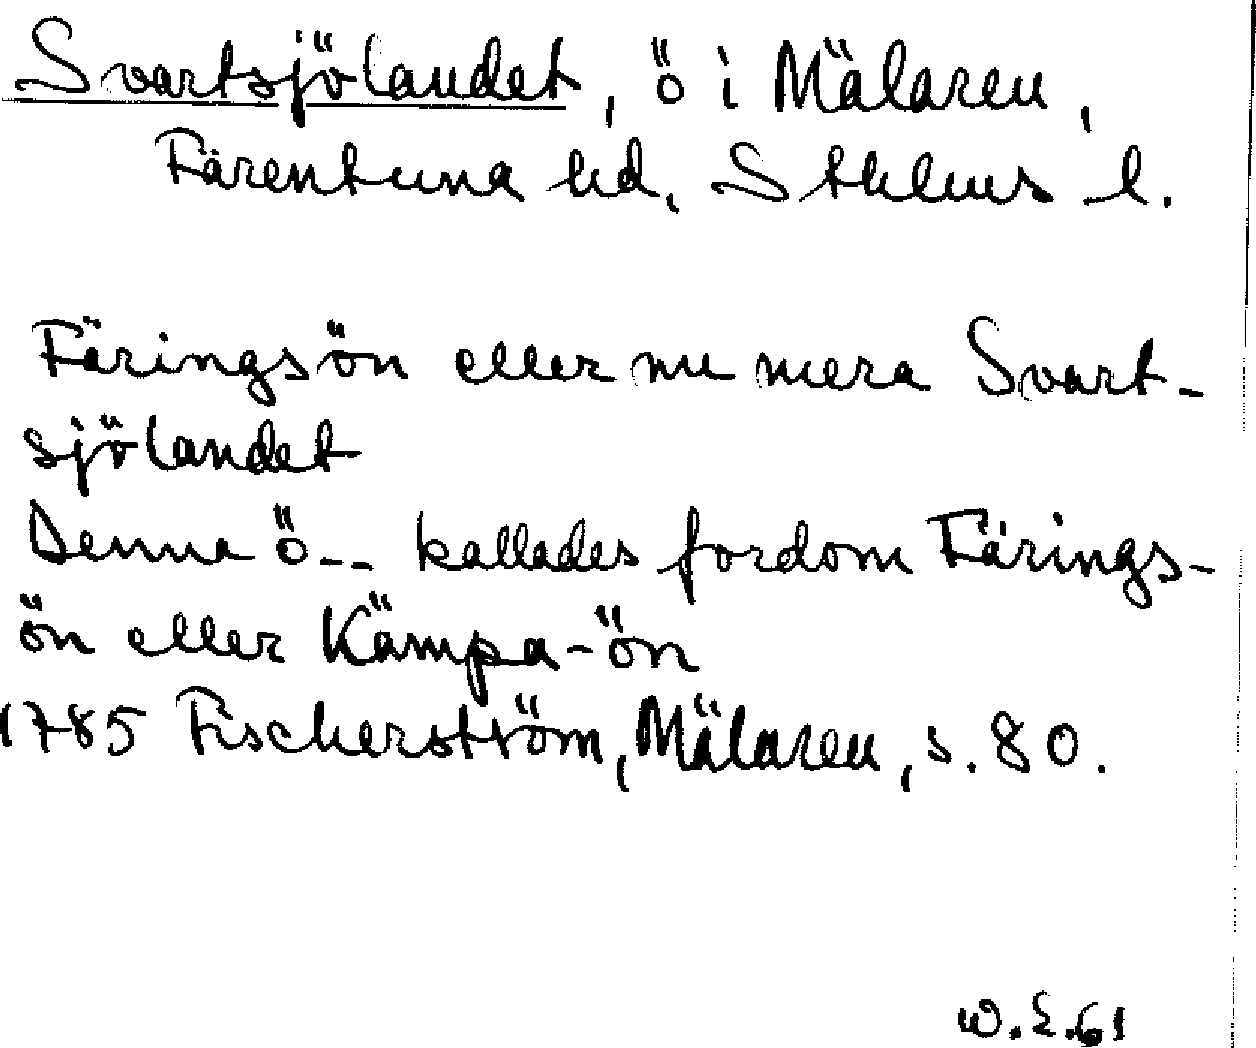 Svartsjölandet, ö i Mälaren,
Färentuna hd, Sthlms l.
Färingsön eller nu mera Svart-
sjölandet
Denna ö -- kallades fordom Färings-
ön eller Kämpa-ön
1785 Fischerström, Mälaren, s. 80.
W.E.61